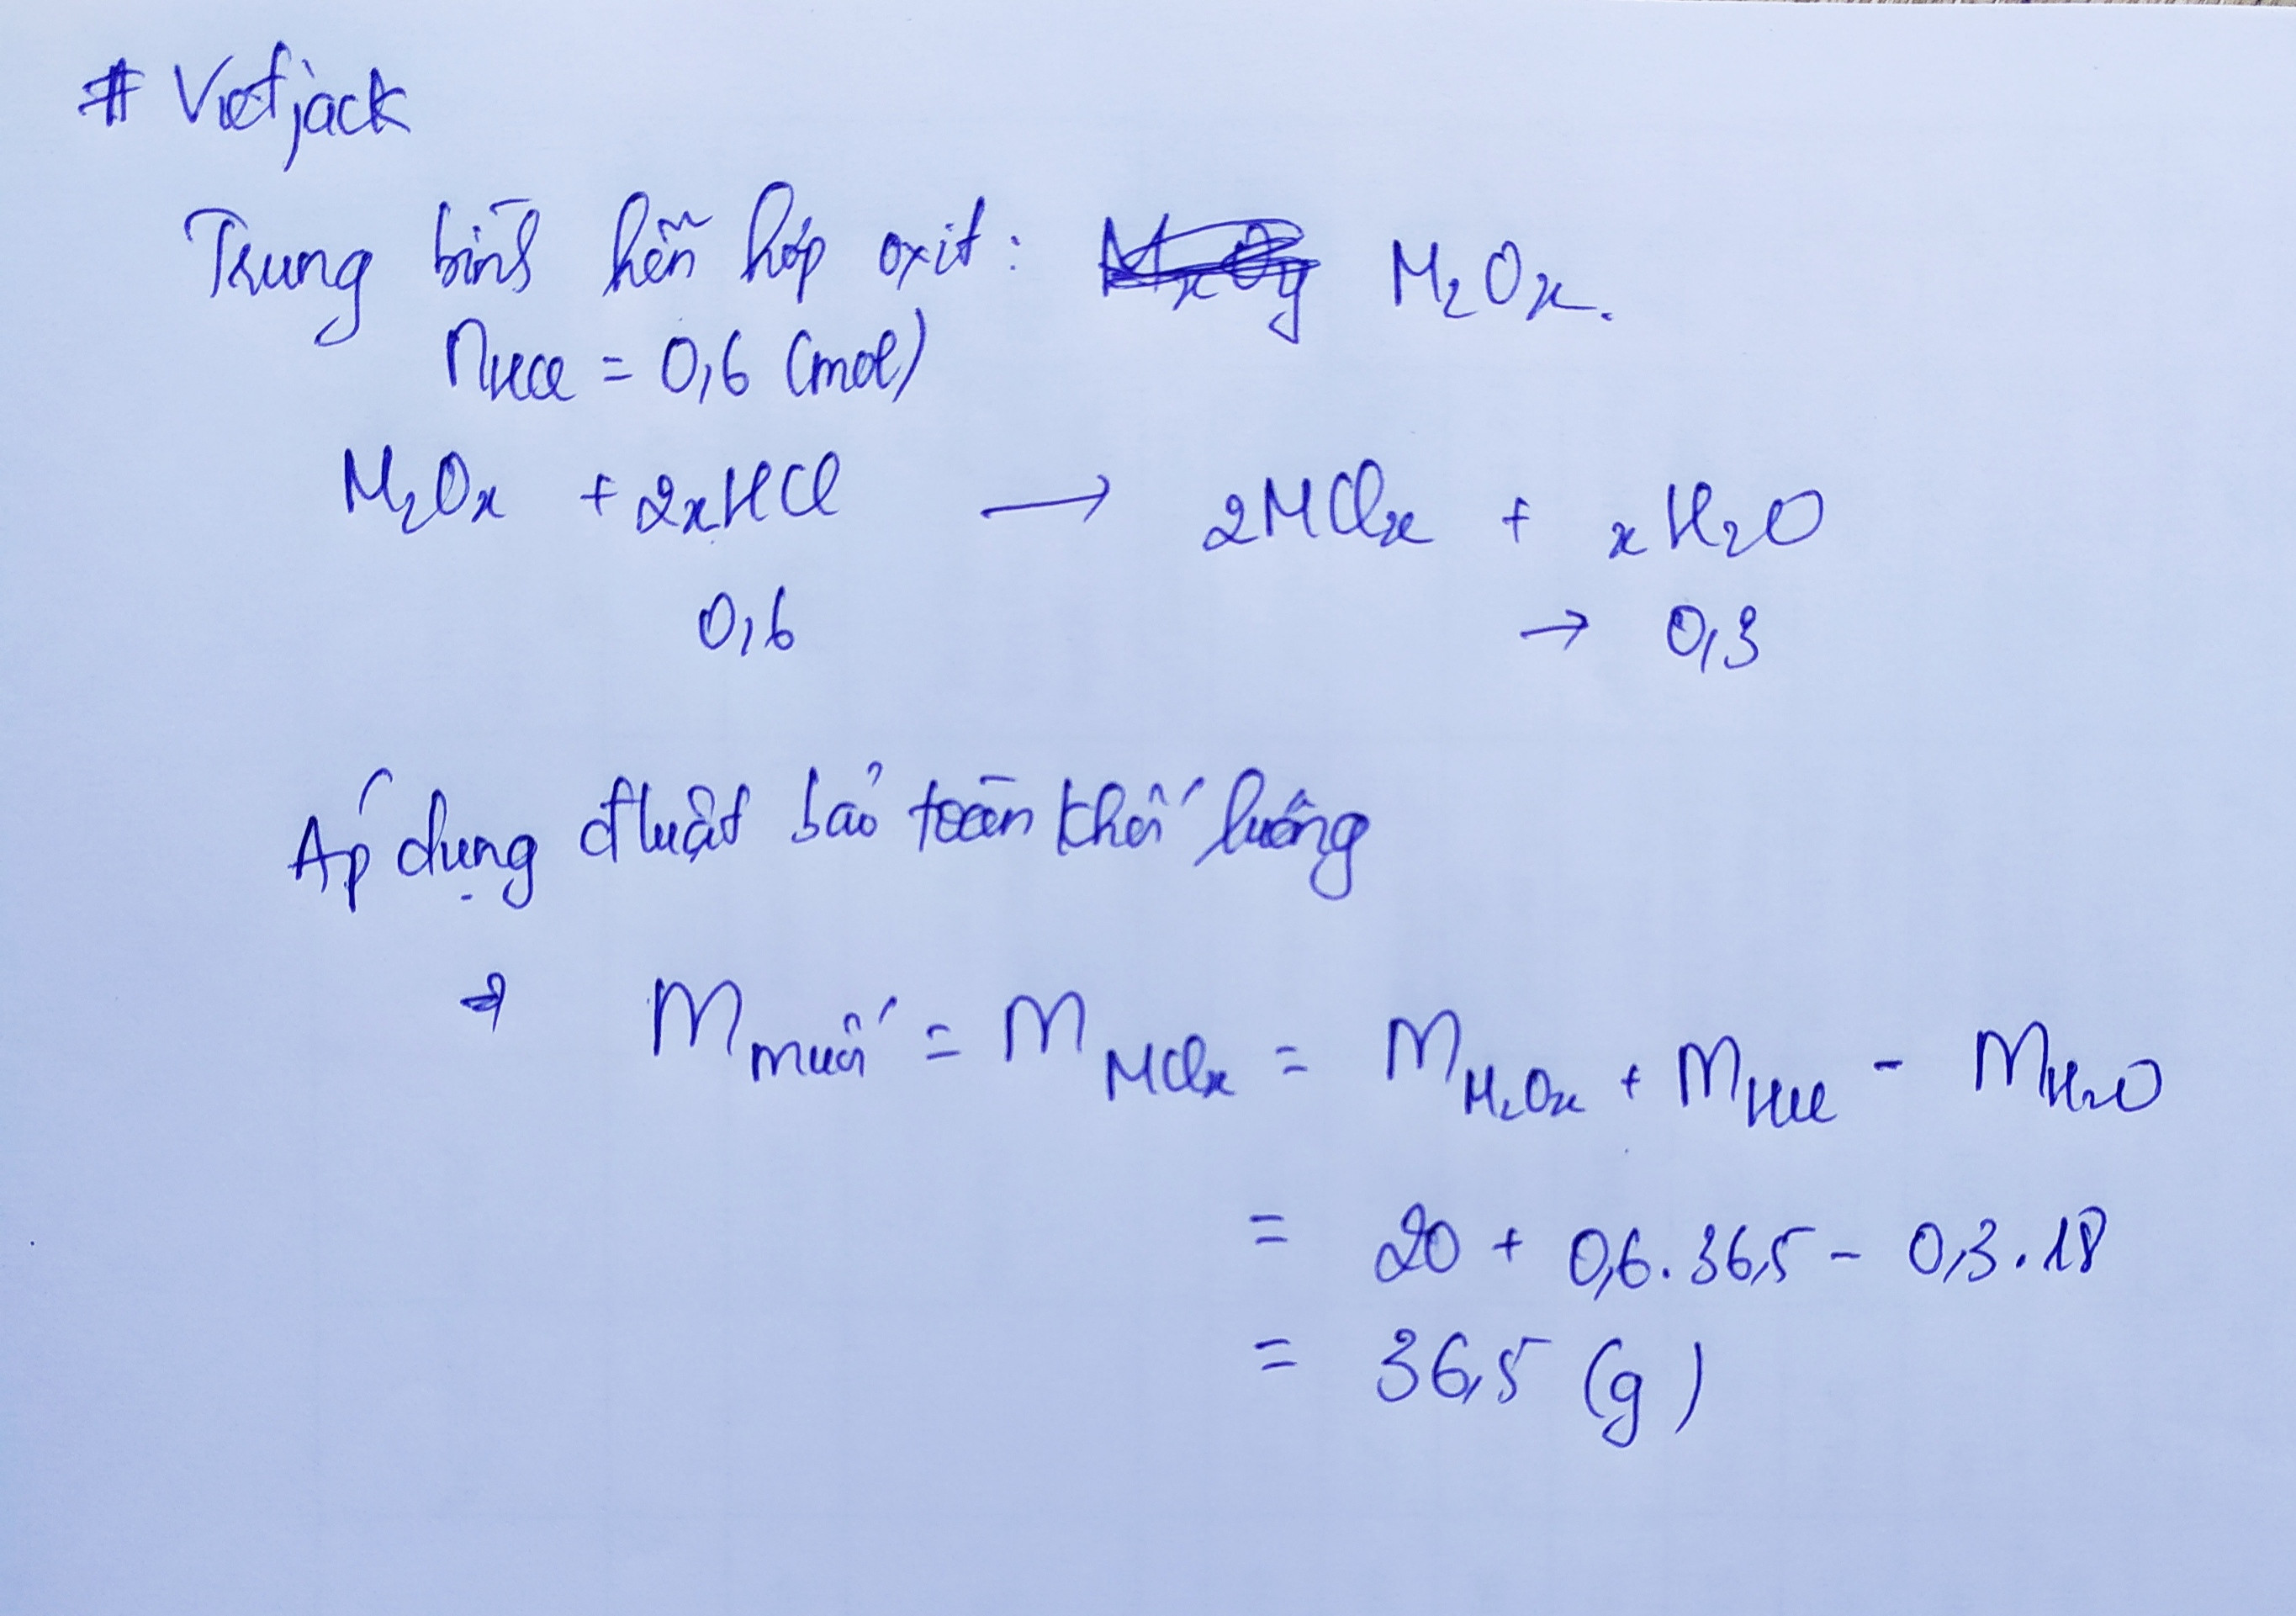 # Vietjack
Trung bình hỗn hợp oxit: M₂Oₓ.
nHCl = 0,6 (mol)
M₂Oₓ + 2xHCl → 2MClₓ + xH₂O
0,6 → 0,3
Áp dụng đluật bảo toàn khối lượng
⇒ m muối = m MClₓ = m M₂Oₓ + m HCl - m H₂O
= 20 + 0,6.36,5 - 0,3.18
= 36,5 (g)